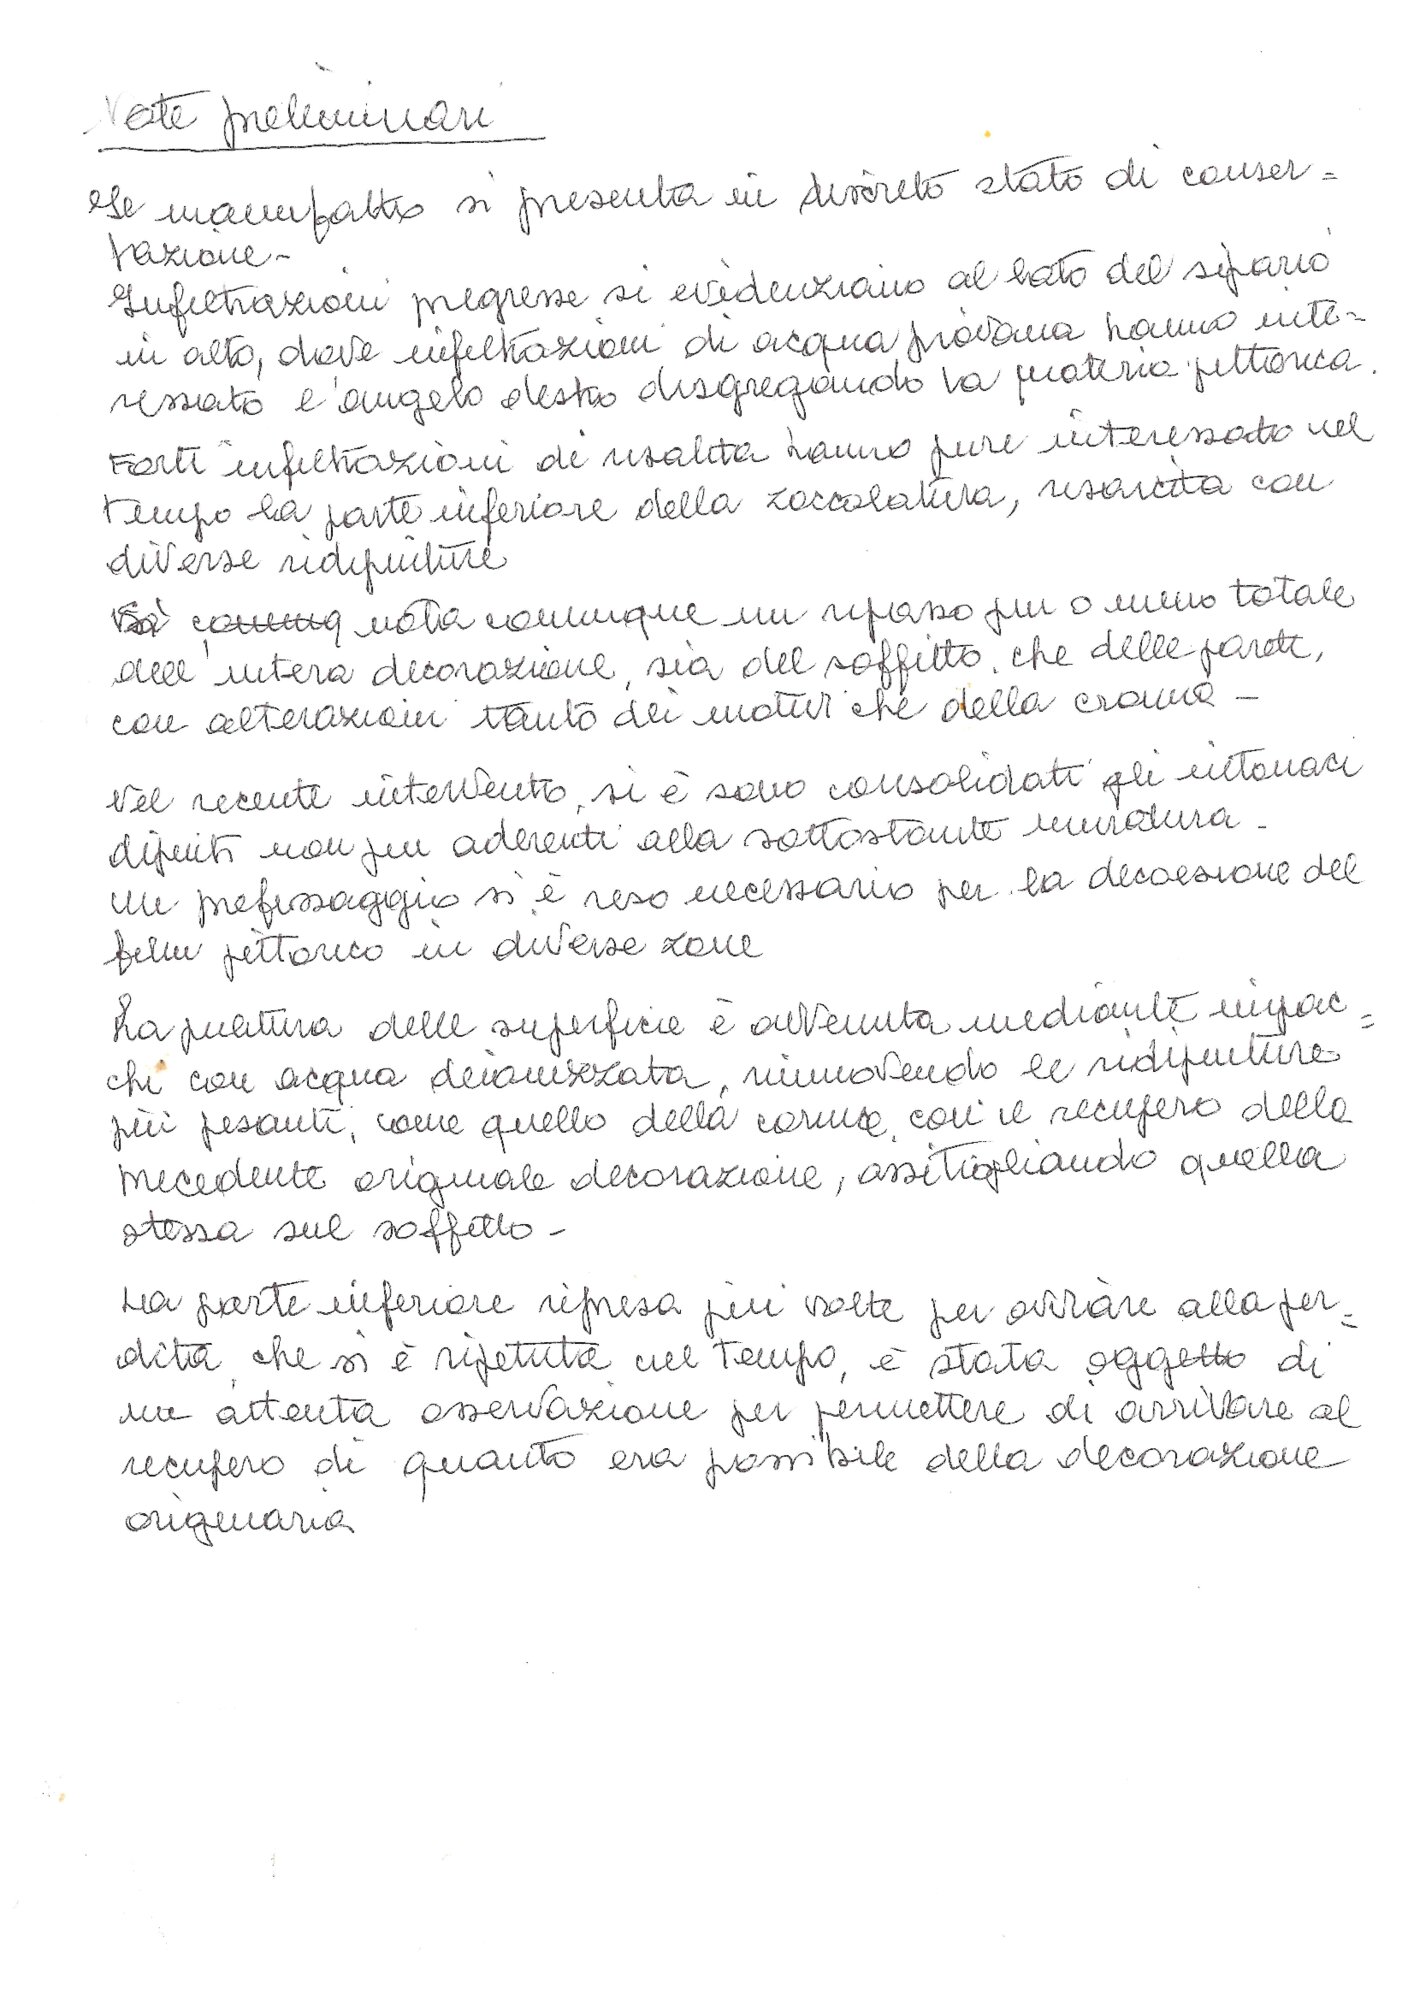 Note preliminari
Il manufatto si presenta in discreto stato di conser=
vazione-
Infiltrazioni pregresse si evidenziano al lato del sipario
in alto, dove infiltrazioni di acqua piovana hanno inte-
ressato l'angelo destro disgregando la materia pittorica.
Forti infiltrazioni di risalita hanno pure interessato nel
tempo la parte inferiore della zoccolatura, risarcita con
diverse ridipinture
nota comunque un ripasso più o meno totale
dell'intera decorazione, sia del soffitto, che delle pareti,
con alterazioni tanto dei motivi che della cromia -
Nel recente intervento, si è sono consolidati gli intonaci
dipinti non più aderenti alla sottostante muratura -
Un prefissaggio si è reso necessario per la decoesione del
film pittorico in diverse zone
La pulitura delle superficie è avvenuta mediante impac=
chi con acqua deionizzata, rimuovendo le ridipinture
più pesanti, come quello della cornice, con il recupero della
precedente originale decorazione, assitigliando quella
stessa sul soffitto -
La parte inferiore ripresa più volte per ovviare alla per=
dita, che si è ripetuta nel tempo, è stata oggetto di
una attenta osservazione per permettere di arrivare al
recupero di quanto era possibile della decorazione
originaria